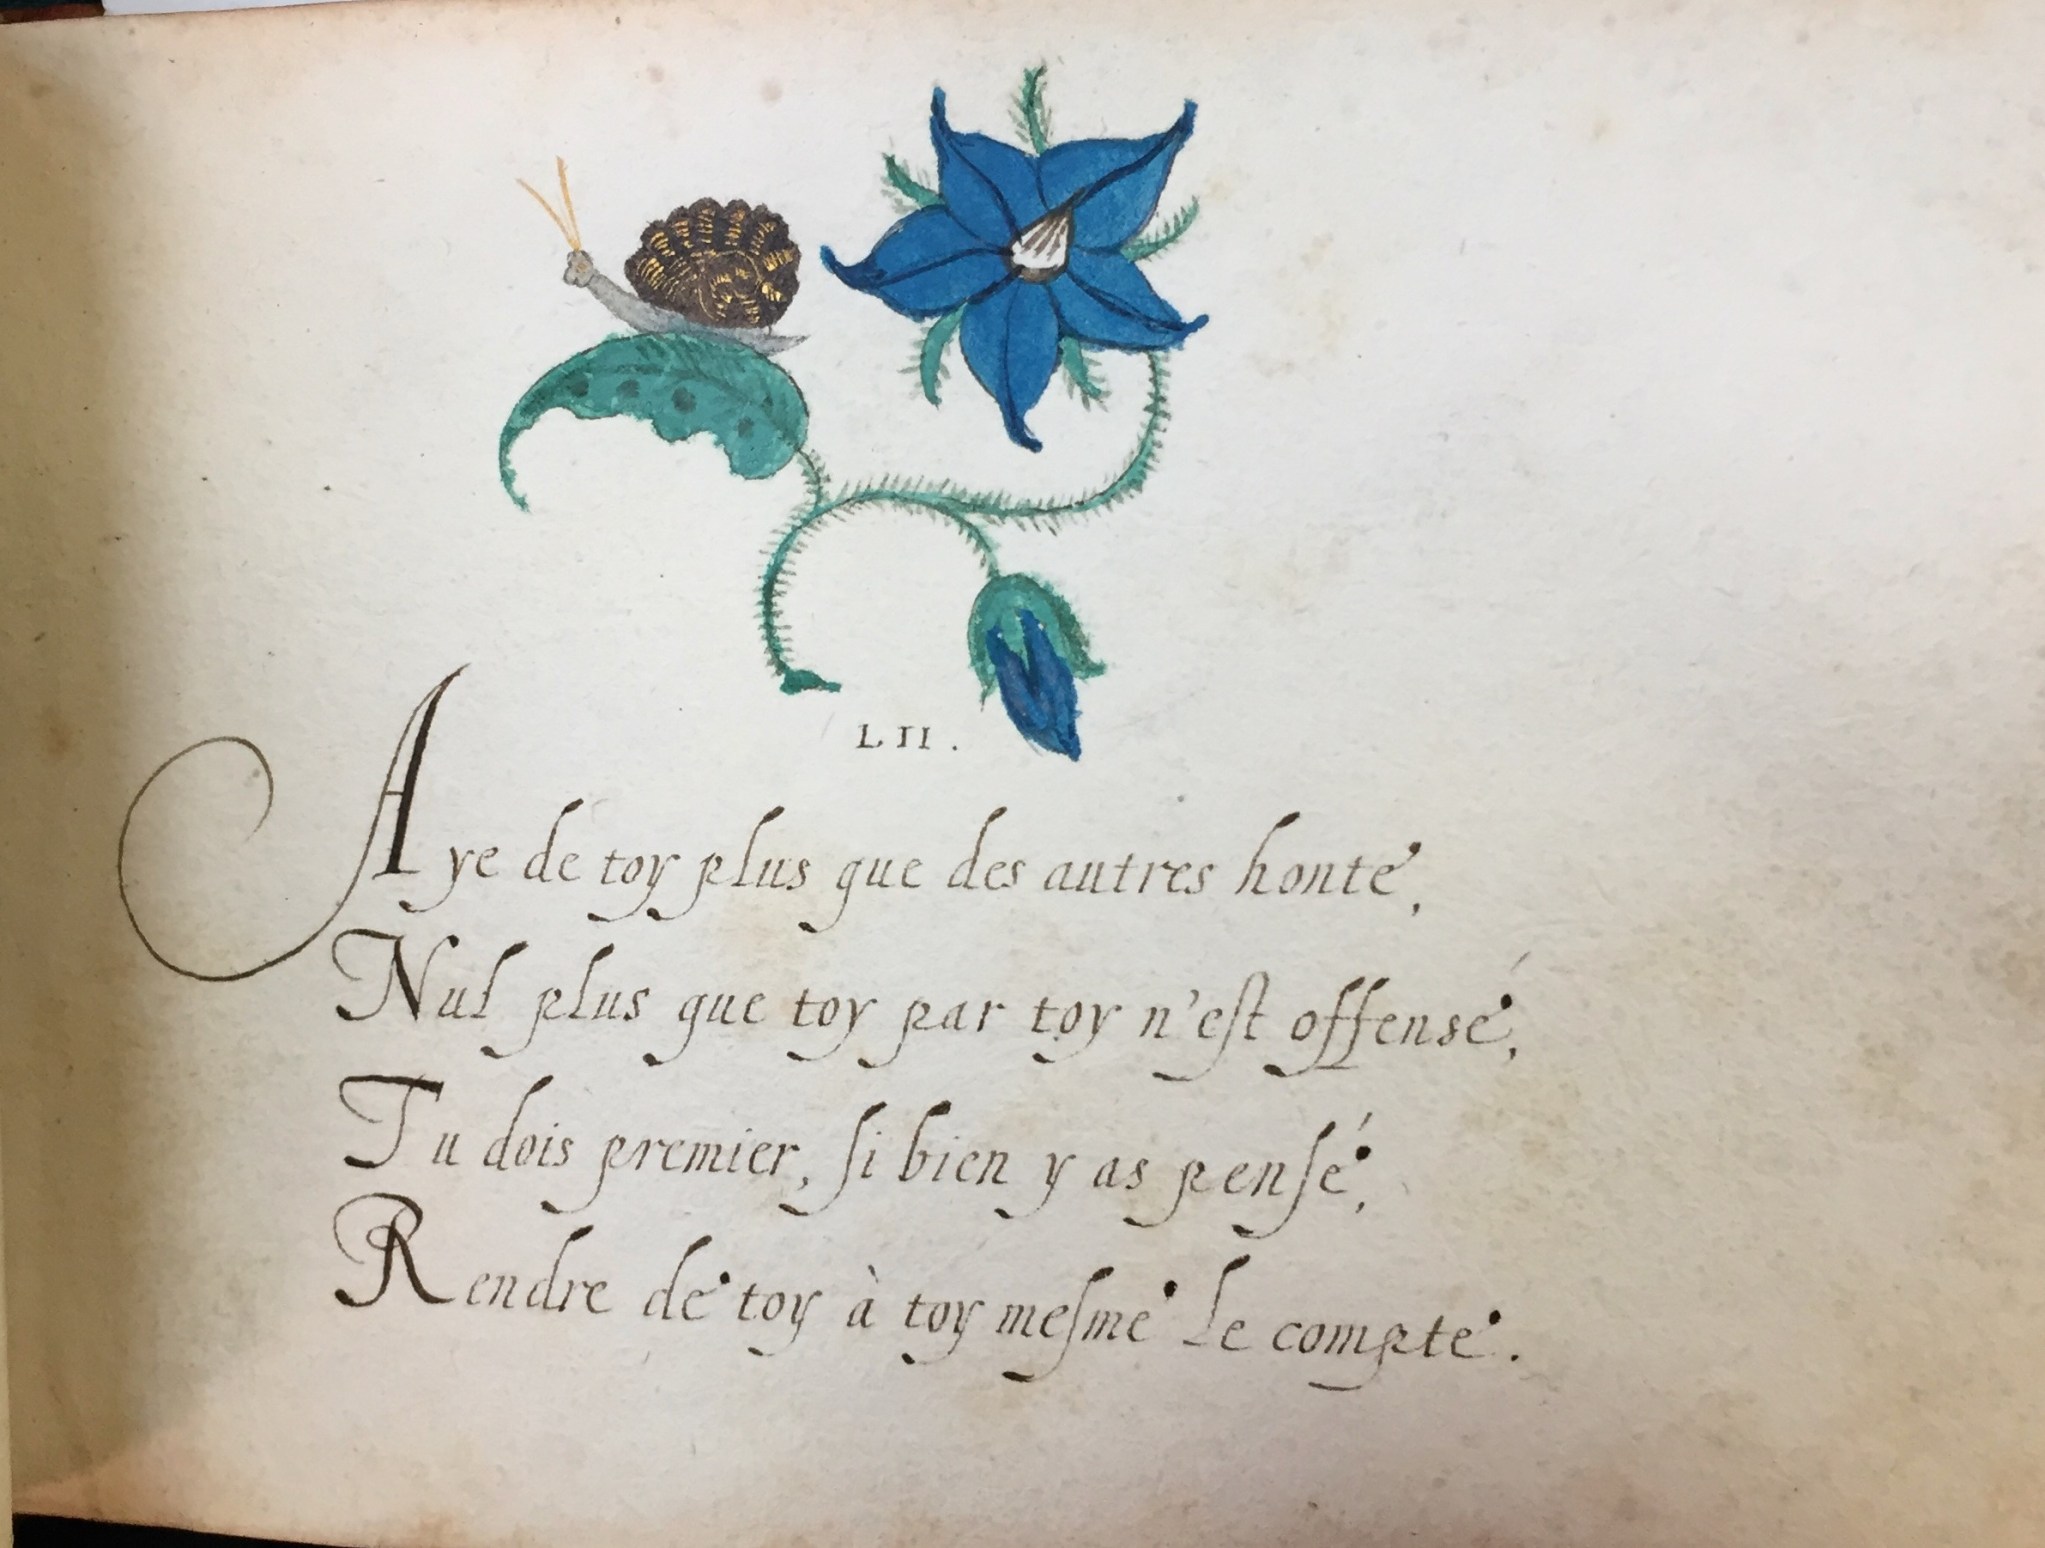 LII.
Aye de toy plus que des autres honte,
Nul plus que toy par toy n'eſt offensé,
Tu dois premier, ſi bien y as penſé,
Rendre de toy à toy meſme le compte.